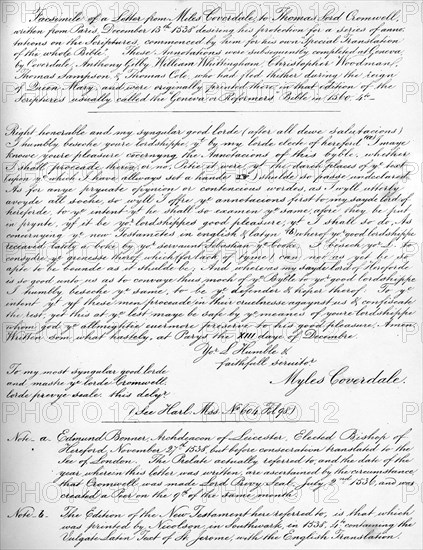 Facsimile of a Letter from Myles Coverdale, to Thomas Lord Cromwell,
written from Paris, December 13th 1538 desiring his protection for a series of anno-
tations on the Scriptures, commenced by him for his own Special Translation
of the whole Bible. These Annotations were subsequently completed at Geneva
by Coverdale, Anthony Gilby, William Whittingham, Christopher Woodman,
Thomas Sampson, & Thomas Cole, who had fled thither during the reign
of Queen Mary, and were originally printed there, in that edition of the
Scriptures usually called the Geneva or Reformers' Bible in 1560. 4to
Right honorable and my syngular good lorde (after all dewe salutacions)
I humbly beseche youre lordshippe yt by my lorde electe of hereford I maye
knowe youre pleasure concernyng the Annotacions of this byble, whether
I shall proceade therin, or no. Pitie it were yt the darck places of ye text
(upon ye which I have allwaye set a hande) shulde so passe undeclared.
As for anye pryuate opynion or contencious wordes, as I wyll utterly
avoyde all soche, so wyll I offre ye annotacions first to my sayde lord of
hereforde, to ye intent yt he shall so examen ye same, afore they be put
in prynte, yf it be yor lordshippes good pleasure, yt I shall so do. As
concernyng ye new Testamentes in english & latyn b wherof yor good lordshippe
receaved lately a boke by yor servaunt Sebastian ye Cooke, I besech yor L. to
consydre ye grenesse therof which (for lack of tyme) can not as yet be so
apte to be bounde as it shulde be; And where as my sayde lord of Hereforde
is so good unto us as to convaye thus moch of ye Byble to yor good lordshippe
I humbly beseche ye same, to be ye defender & keper therof: To ye
intent yt yf these men proceade in their cruelnesse agaynst us & confiscate
the rest, yet this at ye lest maye be safe by ye meanes of youre lordshippe
whom god ye allmightie evermore preserve to his good pleasure. Amen.
Written som what hastely, at Parys the XIII daye of Decembre.
Yor L. Humble &
faithfull servitor
To my most syngular good lorde
and mastre ye lorde Cromwell
lorde prevye seale this delyr
Myles Coverdale.
(See Harl. Mss. No 604. Fol. 98)
Note a. Edmund Bonner, Archdeacon of Leicester, Elected Bishop of
Hereford, November 27th 1538, but before consecration translated to the
See of London. The Prelate actually referred to, and the date of the
year, wherein this letter was written, are ascertained by the circumstance
that Cromwell was made Lord Privy Seal, July 2nd 1536, and was
created a Peer on the 9th of the same month.
Note b. The Edition of the New Testament here referred to, is that which
was printed by Nicolson, in Southwark, in 1538. 4to containing the
Vulgate Latin Text of St. Jerome, with the English Translation.